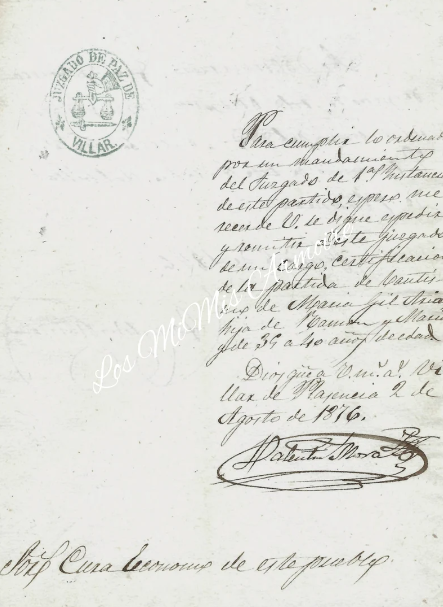 JUZGADO DE PAZ DE
VILLAR.
Para cumplir lo ordenad
por un mandamiento
del Juzgado de 1ª Instancia
de este partido, espero me
V. se digne espedir
y remitir á este juzgado
de mi cargo, certificacion
de la partida de bautis
de Maria Gil
hija de Ramon y Maria
y de 39 á 40 años de edad
Dios gue á V. m. a. Vi
llar de Plasencia 2 de
Agosto de 1876.
Valentin
Sor Cura Economo de este pueblo.
Los MoMis Alamo